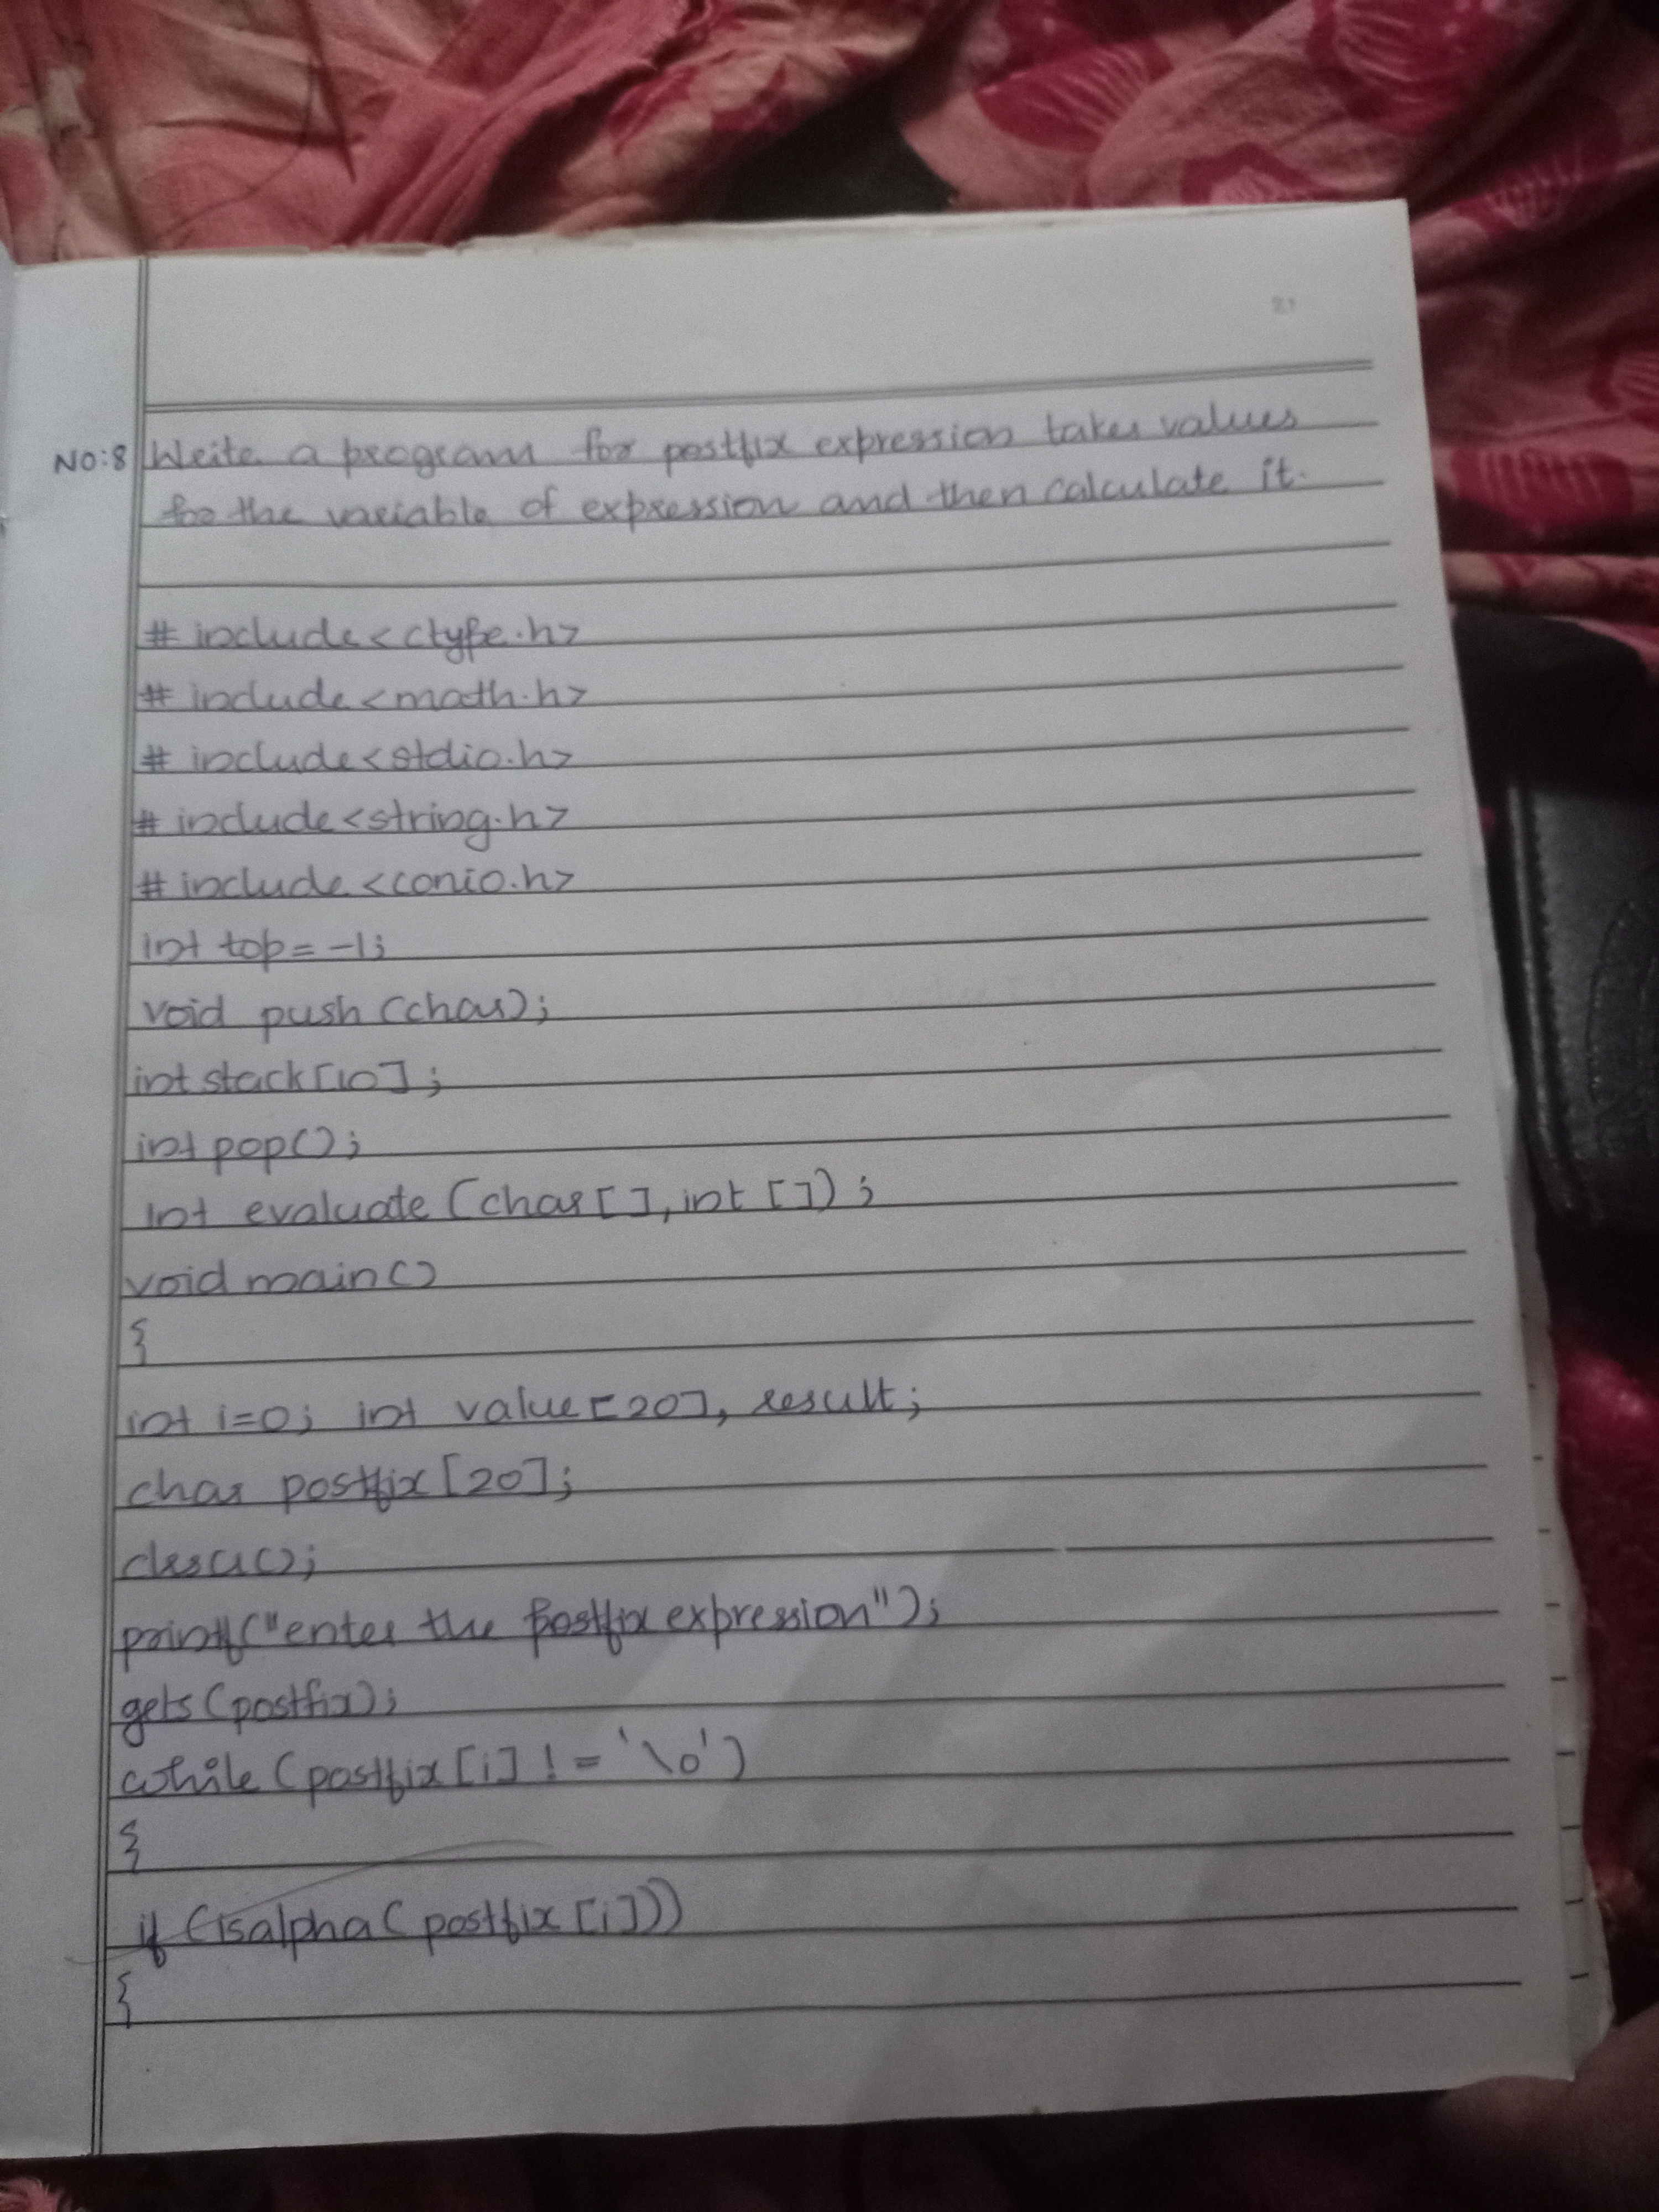 21
NO:8 Write a program for postfix expression takes values
for the variable of expression and then calculate it.
# include<ctype.h>
# include<math.h>
# include<stdio.h>
# include<string.h>
# include<conio.h>
int top=-1;
void push(char);
int stack[10];
int pop();
int evaluate(char[],int[]);
void main()
{
int i=0; int value[20], result;
char postfix[20];
clrscr();
printf("enter the postfix expression");
gets(postfix);
while(postfix[i]!='\0')
{
if(isalpha(postfix[i]))
{